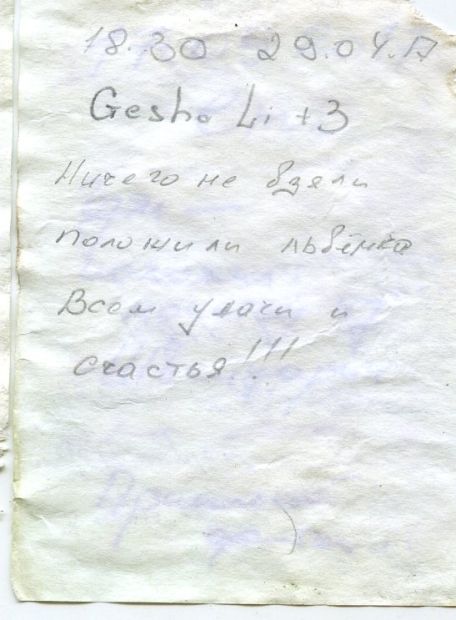 18.30 29.04.17
Gesha Li +3
Ничего не взяли
положили львёнка
Всем удачи и
счастья!!!